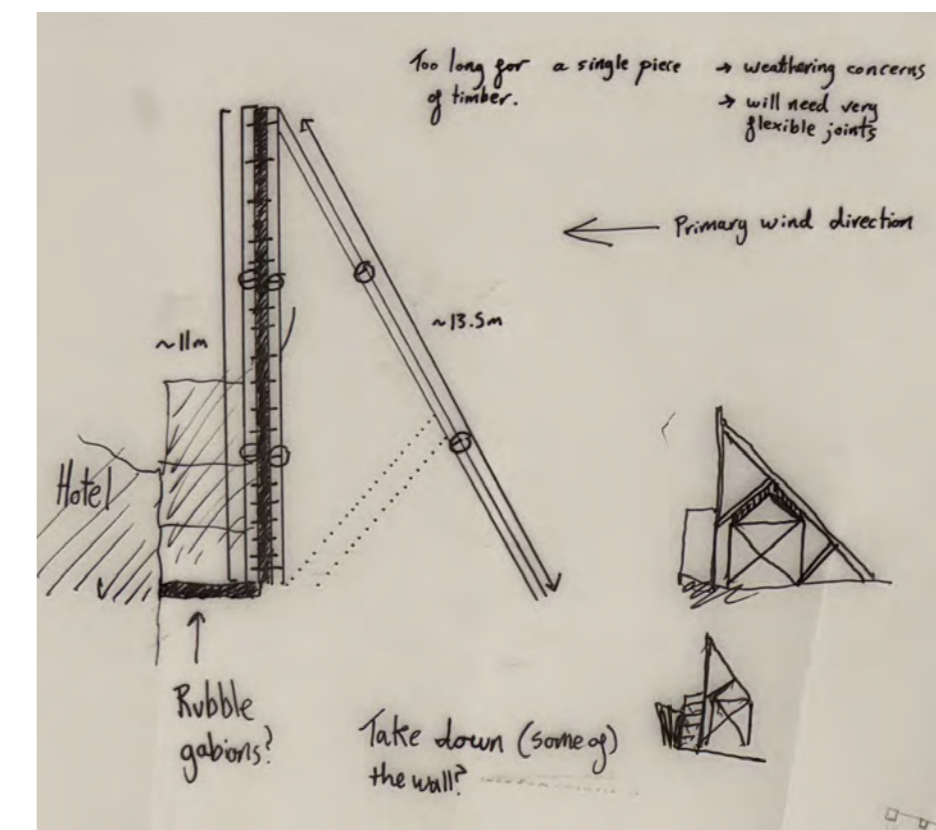 Too long for a single piece
of timber.
→ weathering concerns
→ will need very
flexible joints
← Primary wind direction
~11m
~13.5m
Hotel
Rubble
gabions?
Take down (some of)
the wall?